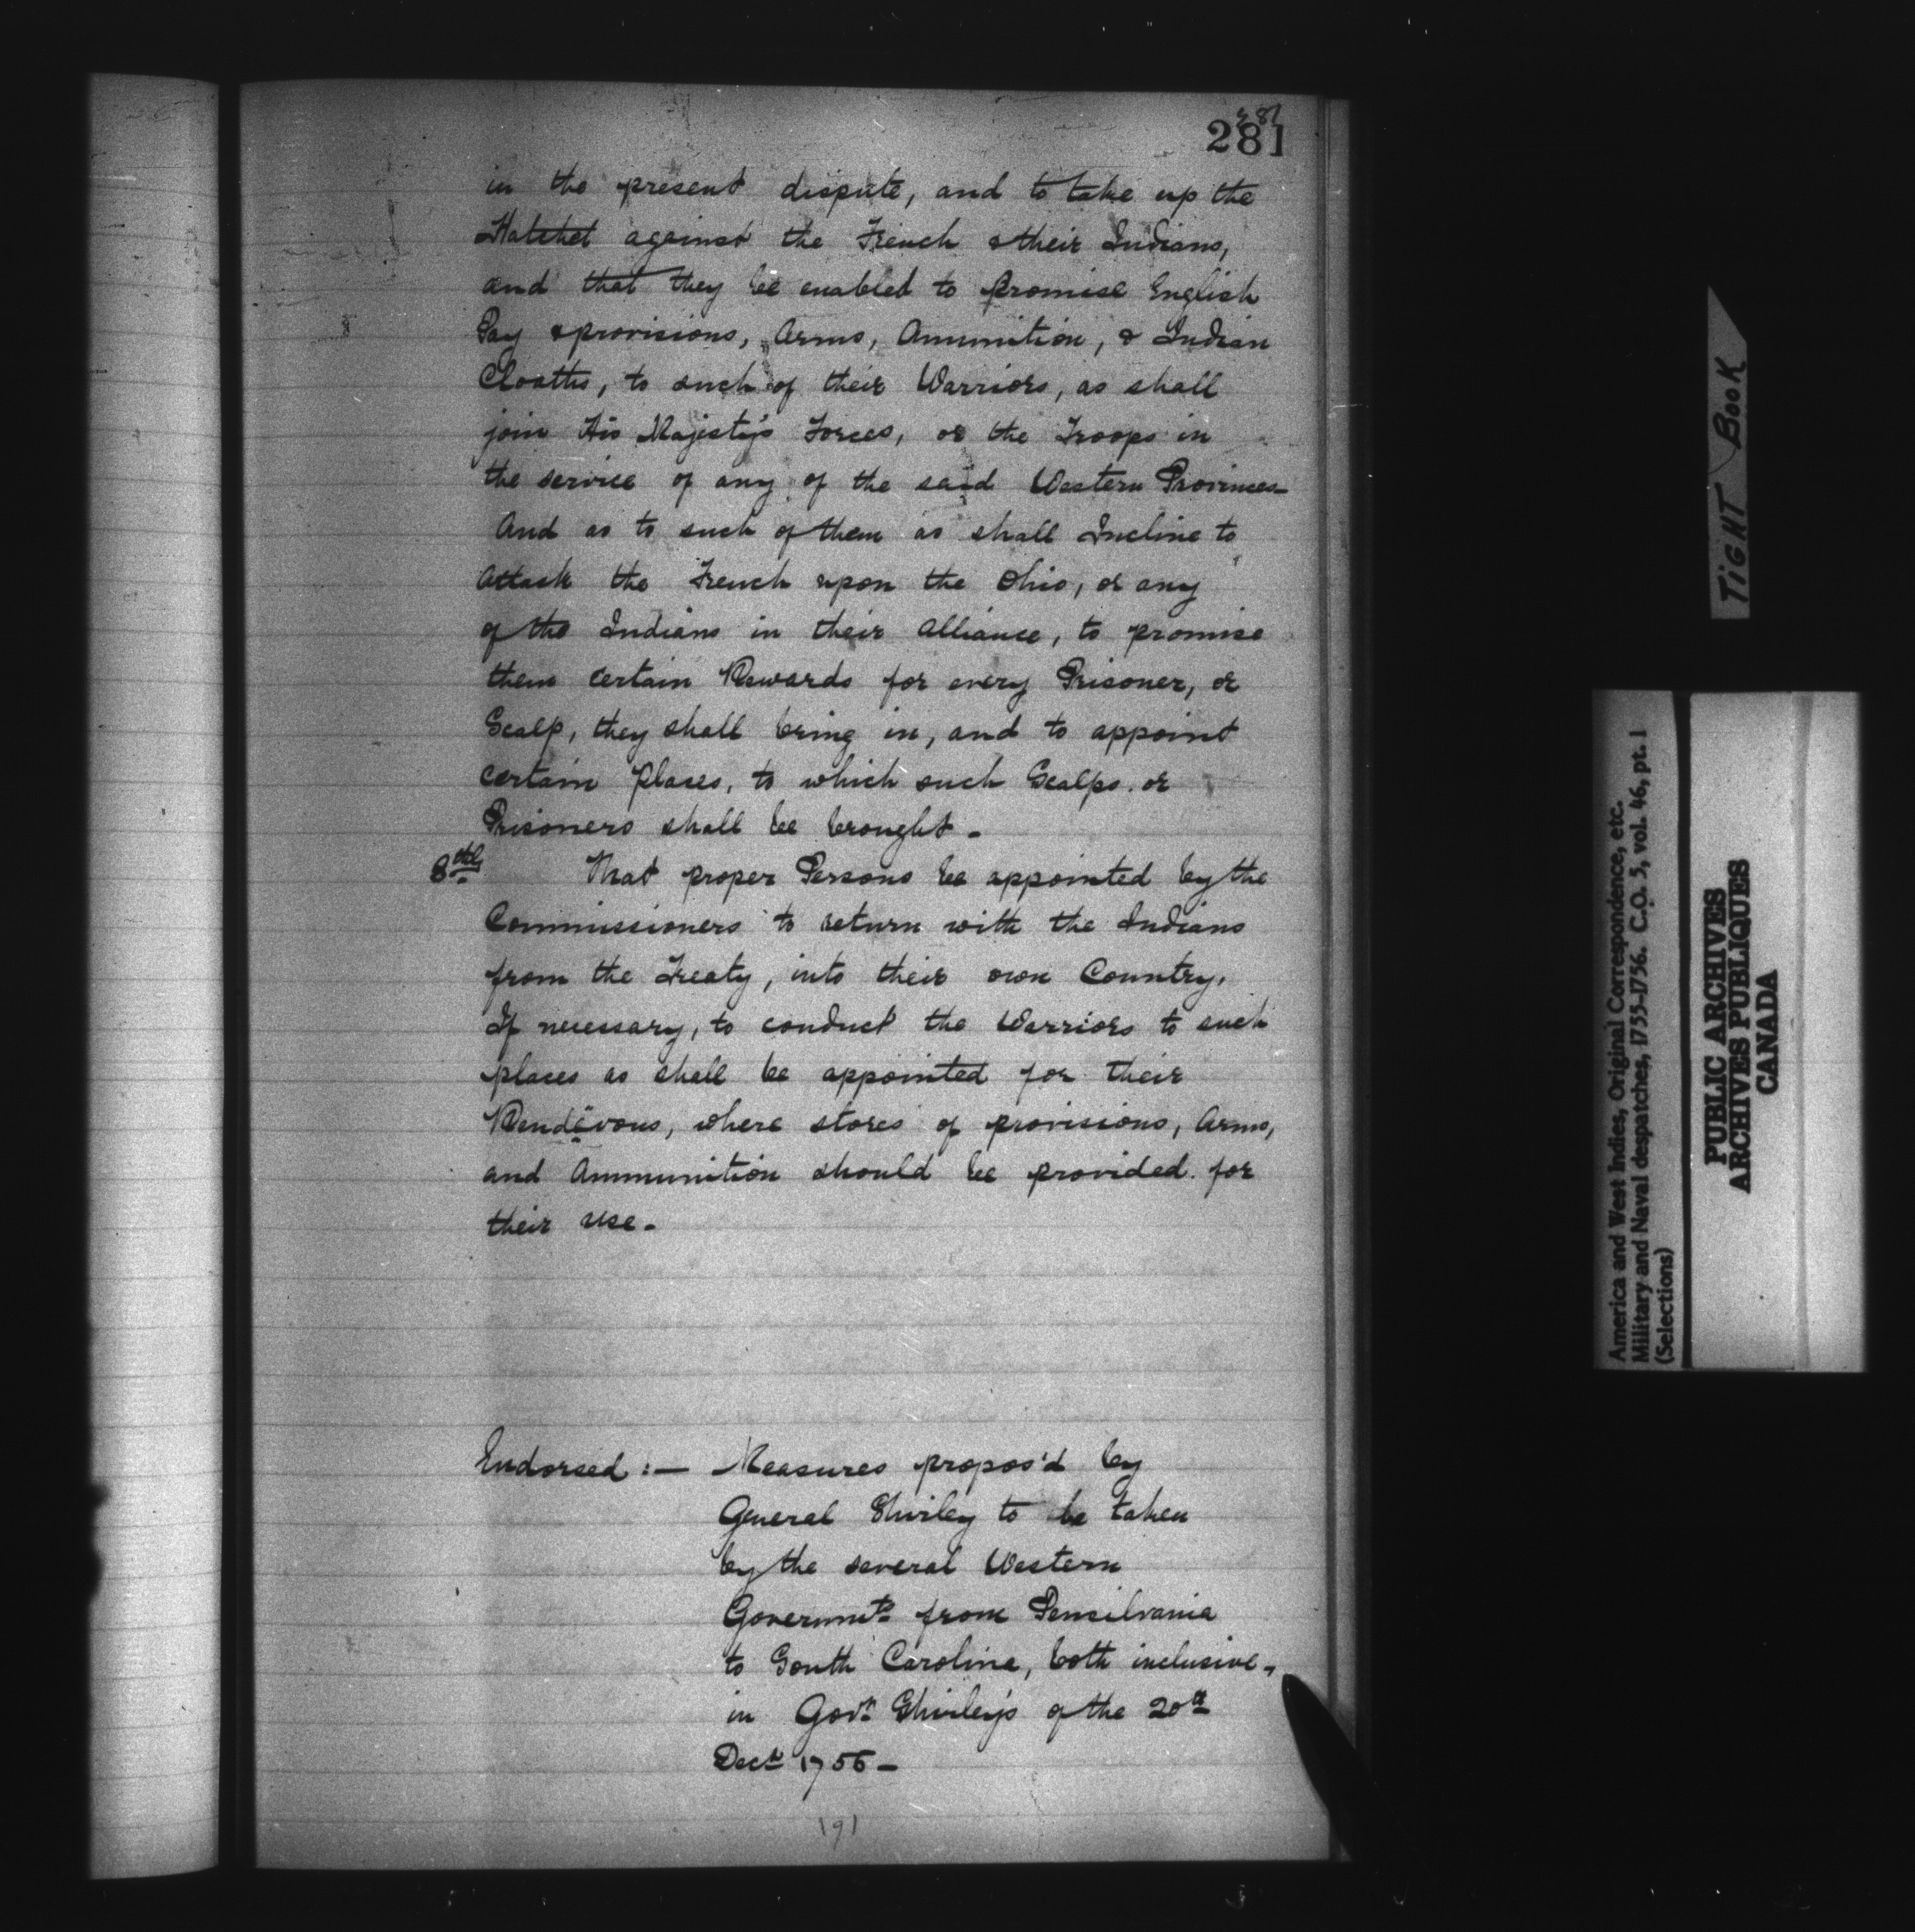 281
281
in the present dispute, and to take up the
Hatchet against the French & their Indians,
and that they be enabled to promise English
Pay & provisions, Arms, Ammunition, & Indian
Cloaths, to such of their Warriors, as shall
join His Majesty's Forces, or the Troops in
the service of any of the said Western Provinces
And as to such of them as shall Incline to
Attack the French upon the Ohio, or any
of the Indians in their Alliance, to promise
them certain Rewards for every Prisoner, or
Scalp, they shall bring in, and to appoint
certain Places, to which such Scalps or
Prisoners shall be brought -
8thly That proper Persons be appointed by the
Commissioners to return with the Indians
from the Treaty, into their own Country,
If necessary, to conduct the Warriors to such
places as shall be appointed for their
Rendévous, where stores of provisions, Arms,
and Ammunition should be provided for
their use -
Endorsed :— Measures propos'd by
General Shirley to be taken
by the several Western
Governmts from Pensilvania
to South Carolina, both inclusive -
in Govr Shirley's of the 20th
Decr 1755 -
191
TIGHT BOOK
America and West Indies, Original Correspondence, etc.
Military and Naval despatches, 1755-1756. C.O. 5, vol. 46, pt. 1
(Selections)
PUBLIC ARCHIVES
ARCHIVES PUBLIQUES
CANADA